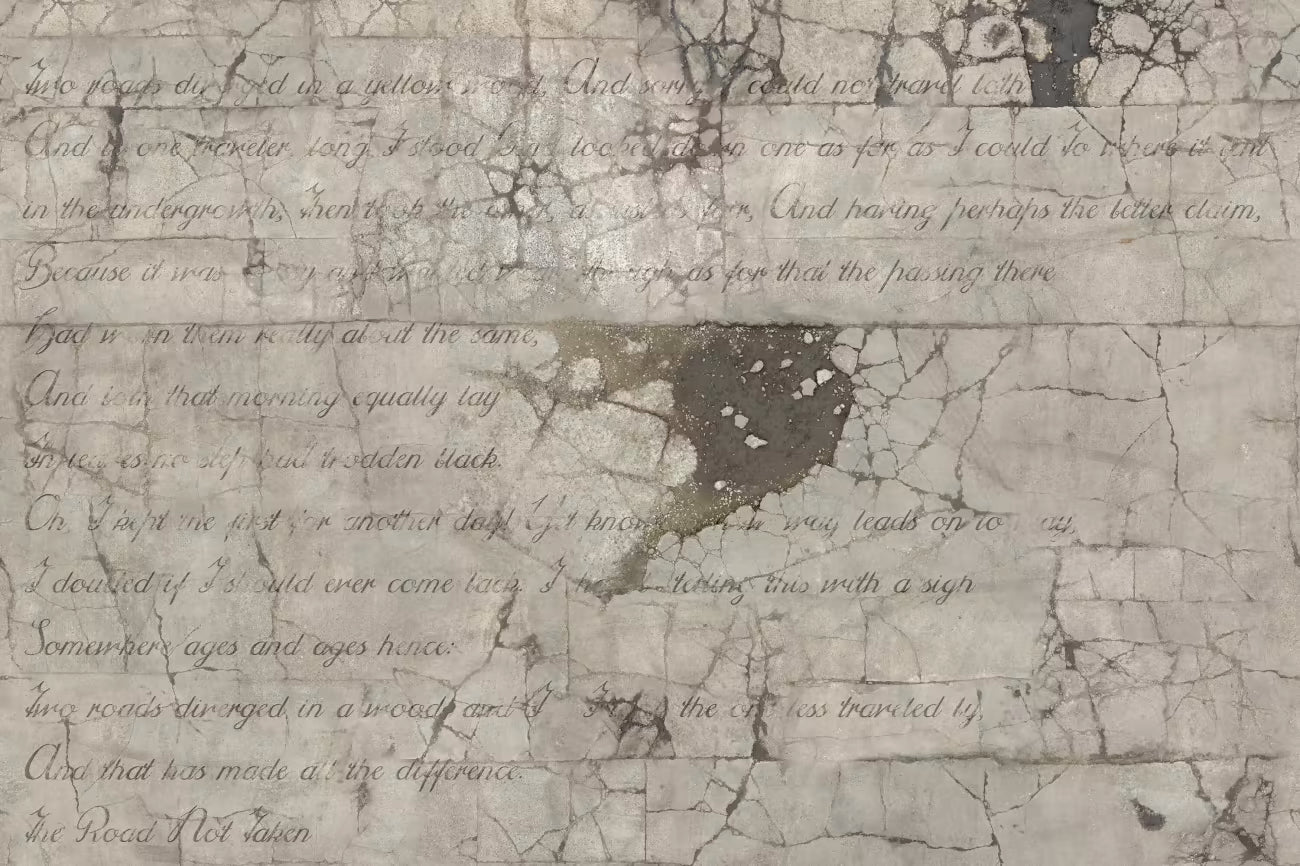 Two roads diverged in a yellow wood, And sorry I could not travel both
And be one traveler, long I stood And looked down one as far as I could To where it bent
in the undergrowth; Then took the other, as just as fair, And having perhaps the better claim,
Because it was grassy and wanted wear; though as for that the passing there
Had worn them really about the same,
And both that morning equally lay
In leaves no step had trodden black.
Oh, I kept the first for another day! Yet knowing how way leads on to way,
I doubted if I should ever come back. I be telling this with a sigh
Somewhere ages and ages hence:
Two roads diverged in a wood, and I I took the one less traveled by,
And that has made all the difference.
The Road Not Taken